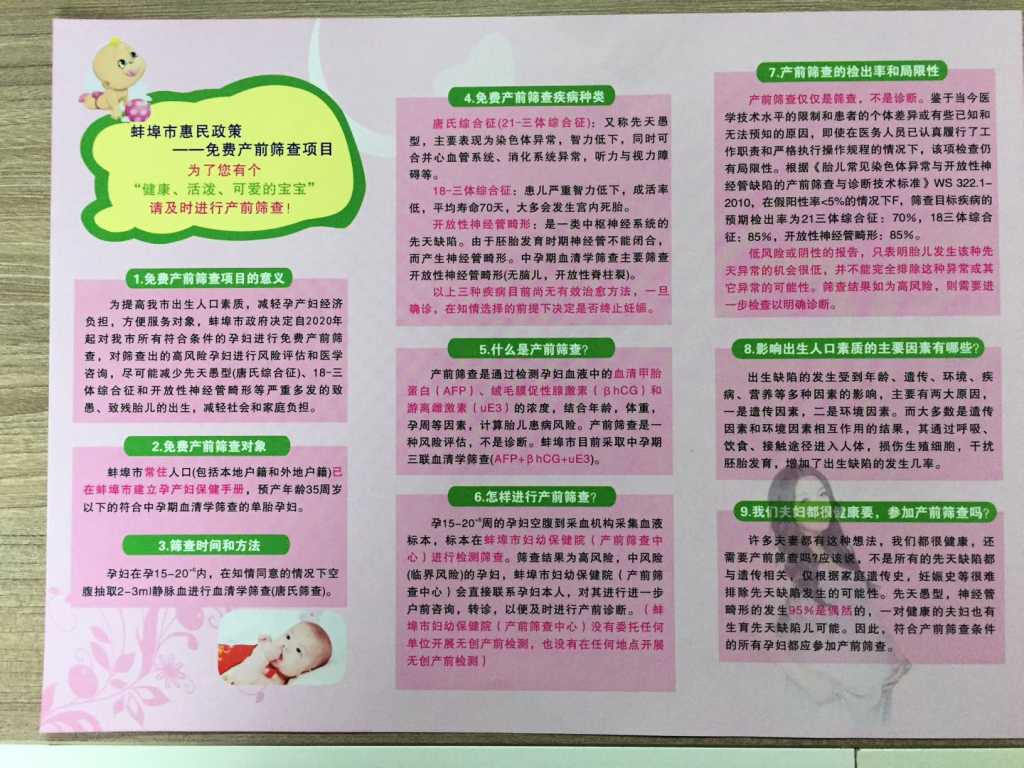 蚌埠市惠民政策
——免费产前筛查项目
为了您有个
“健康、活泼、可爱的宝宝”
请及时进行产前筛查！
1.免费产前筛查项目的意义
为提高我市出生人口素质，减轻孕产妇经济
负担，方便服务对象，蚌埠市政府决定自2020年
起对我市所有符合条件的孕妇进行免费产前筛
查，对筛查出的高风险孕妇进行风险评估和医学
咨询，尽可能减少先天愚型(唐氏综合征)、18-三
体综合征和开放性神经管畸形等严重多发的致
愚、致残胎儿的出生，减轻社会和家庭负担。
2.免费产前筛查对象
蚌埠市常住人口(包括本地户籍和外地户籍)已
在蚌埠市建立孕产妇保健手册，预产年龄35周岁
以下的符合中孕期血清学筛查的单胎孕妇。
3.筛查时间和方法
孕妇在孕15-20⁺⁶内，在知情同意的情况下空
腹抽取2-3ml静脉血进行血清学筛查(唐氏筛查)。
4.免费产前筛查疾病种类
唐氏综合征(21-三体综合征)：又称先天愚
型，主要表现为染色体异常，智力低下，同时可
合并心血管系统、消化系统异常，听力与视力障
碍等。
18-三体综合征：患儿严重智力低下，成活率
低，平均寿命70天，大多会发生宫内死胎。
开放性神经管畸形：是一类中枢神经系统的
先天缺陷。由于胚胎发育时期神经管不能闭合，
而产生神经管畸形。中孕期血清学筛查主要筛查
开放性神经管畸形(无脑儿，开放性脊柱裂)。
以上三种疾病目前尚无有效治愈方法，一旦
确诊，在知情选择的前提下决定是否终止妊娠。
5.什么是产前筛查?
产前筛查是通过检测孕妇血液中的血清甲胎
蛋白（AFP)、绒毛膜促性腺激素（βhCG）和
游离雌激素（uE3）的浓度，结合年龄，体重，
孕周等因素，计算胎儿患病风险。产前筛查是一
种风险评估，不是诊断。蚌埠市目前采取中孕期
三联血清学筛查(AFP+βhCG+uE3)。
6.怎样进行产前筛查?
孕15-20⁺⁶周的孕妇空腹到采血机构采集血液
标本，标本在蚌埠市妇幼保健院（产前筛查中
心）进行检测筛查。筛查结果为高风险，中风险
(临界风险)的孕妇，蚌埠市妇幼保健院（产前筛
查中心）会直接联系孕妇本人，对其进行进一步
产前咨询，转诊，以便及时进行产前诊断。（蚌
埠市妇幼保健院（产前筛查中心）没有委托任何
单位开展无创产前检测，也没有在任何地点开展
无创产前检测）
7.产前筛查的检出率和局限性
产前筛查仅仅是筛查，不是诊断。鉴于当今医
学技术水平的限制和患者的个体差异或有些已知和
无法预知的原因，即使在医务人员已认真履行了工
作职责和严格执行操作规程的情况下，该项检查仍
有局限性。根据《胎儿常见染色体异常与开放性神
经管缺陷的产前筛查与诊断技术标准》WS 322.1-
2010，在假阳性率<5%的情况下F，筛查目标疾病的
预期检出率为21三体综合征：70%，18三体综合
征：85%，开放性神经管畸形：85%。
低风险或阴性的报告，只表明胎儿发生该种先
天异常的机会很低，并不能完全排除这种异常或其
它异常的可能性。筛查结果如为高风险，则需要进
一步检查以明确诊断。
8.影响出生人口素质的主要因素有哪些?
出生缺陷的发生受到年龄、遗传、环境、疾
病、营养等多种因素的影响，主要有两大原因，
一是遗传因素，二是环境因素。而大多数是遗传
因素和环境因素相互作用的结果，其通过呼吸、
饮食、接触途径进入人体，损伤生殖细胞，干扰
胚胎发育，增加了出生缺陷的发生几率。
9.我们夫妇都很健康要，参加产前筛查吗?
许多夫妻都有这种想法，我们都很健康，还
需要产前筛查吗?应该说，不是所有的先天缺陷都
与遗传相关，仅根据家庭遗传史，妊娠史等很难
排除先天缺陷发生的可能性。先天愚型，神经管
畸形的发生95%是偶然的，一对健康的夫妇也有
生育先天缺陷儿可能。因此，符合产前筛查条件
的所有孕妇都应参加产前筛查。